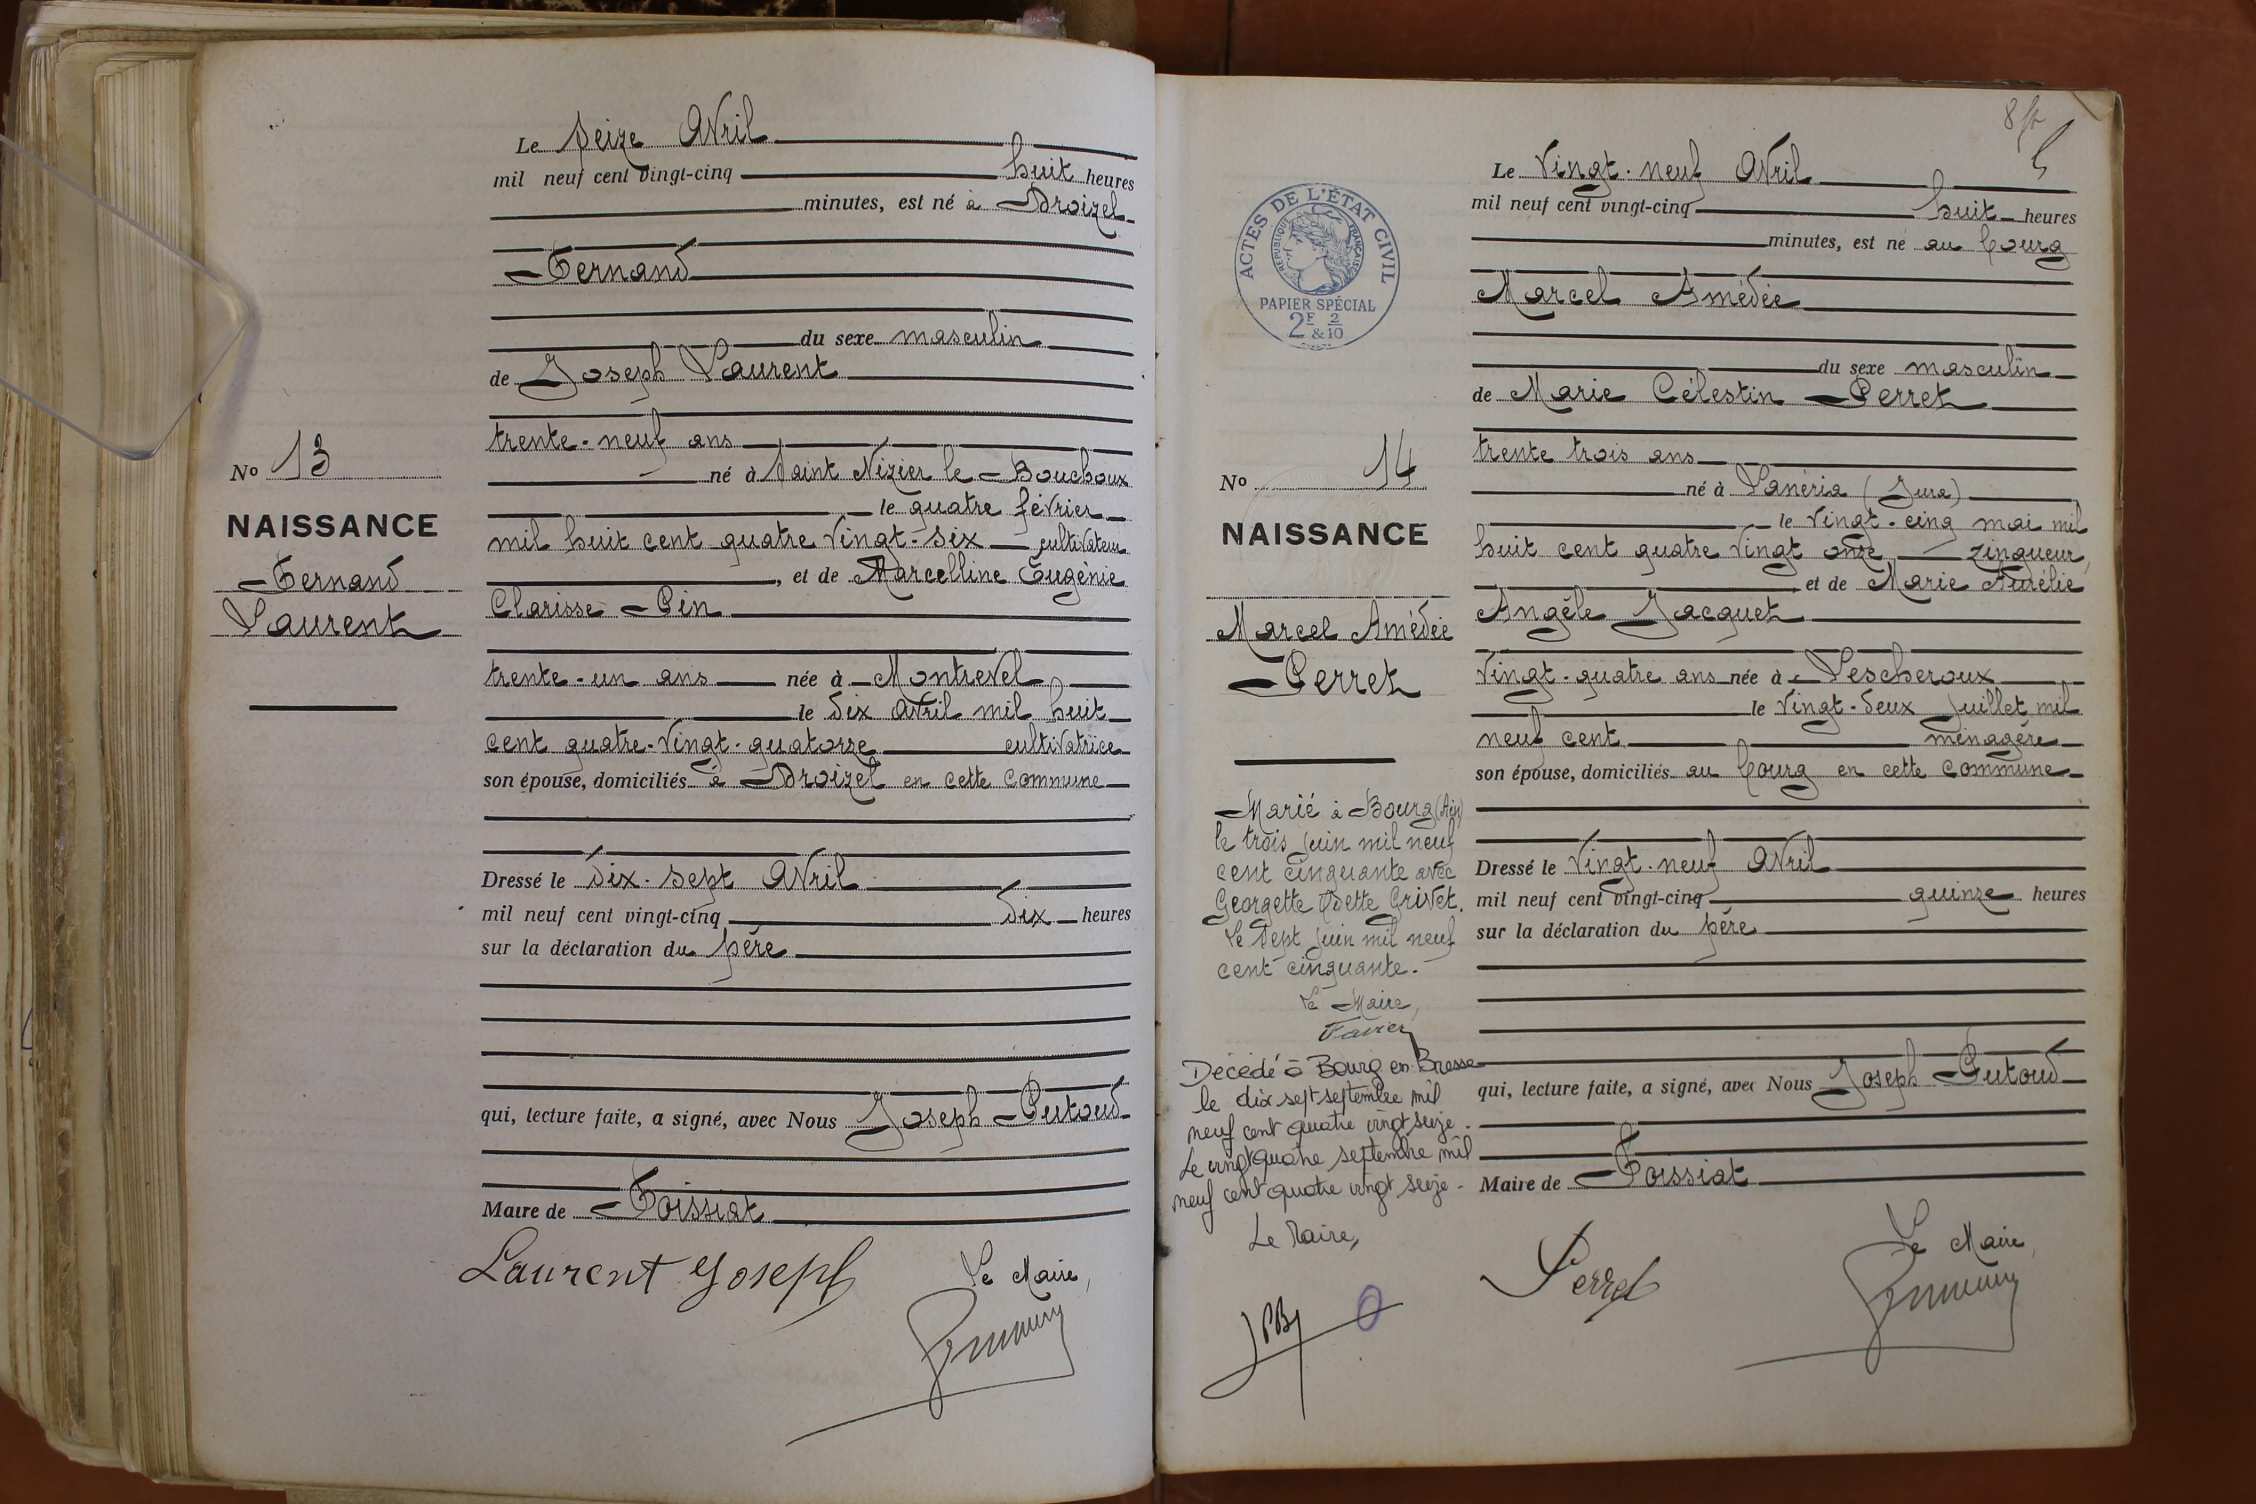 Le Seize Avril
mil neuf cent vingt-cinq huit heures
minutes, est né à Droizel
Fernand
du sexe masculin
de Joseph Laurent
trente-neuf ans
né à Saint Nizier le Bouchoux
le quatre février
mil huit cent quatre vingt-six cultivateur
, et de Marcelline Eugénie
Clarisse Pin
trente-un ans née à Montrevel
le dix Avril mil huit
cent quatre-vingt-quatorze cultivatrice
son épouse, domiciliés à Droizel en cette commune
Dressé le dix-sept Avril
mil neuf cent vingt-cinq dix heures
sur la déclaration du père
qui, lecture faite, a signé, avec Nous Joseph Putoud
Maire de Foissiat
Laurent Joseph
Le Maire,
No 13
NAISSANCE
Fernand
Laurent
8
Le Vingt-neuf Avril
mil neuf cent vingt-cinq huit heures
minutes, est né au bourg
Marcel Amédée
du sexe masculin
de Marie Célestin Perret
trente trois ans
né à Lanéria (Jura)
le vingt-cinq mai mil
huit cent quatre vingt onze zingueur,
et de Marie Aurélie
Angèle Jacquet
vingt-quatre ans née à Lescheroux
le vingt-deux juillet mil
neuf cent ménagère
son épouse, domiciliés au bourg en cette commune
Dressé le vingt-neuf Avril
mil neuf cent vingt-cinq quinze heures
sur la déclaration du père
qui, lecture faite, a signé, avec Nous Joseph Putoud
Maire de Foissiat
Perret
Le Maire,
ACTES DE L'ÉTAT CIVIL
RÉPUBLIQUE FRANÇAISE
PAPIER SPÉCIAL
2F & 2/10
No 14
NAISSANCE
Marcel Amédée
Perret
Marié à Bourg (Ain)
le trois juin mil neuf
cent cinquante avec
Georgette Odette Grivet.
Le Sept juin mil neuf
cent cinquante.
Le Maire,
Favier
Décédé à Bourg en Bresse
le dix sept septembre mil
neuf cent quatre vingt seize.
Le vingt quatre septembre mil
neuf cent quatre vingt seize.
Le Maire,